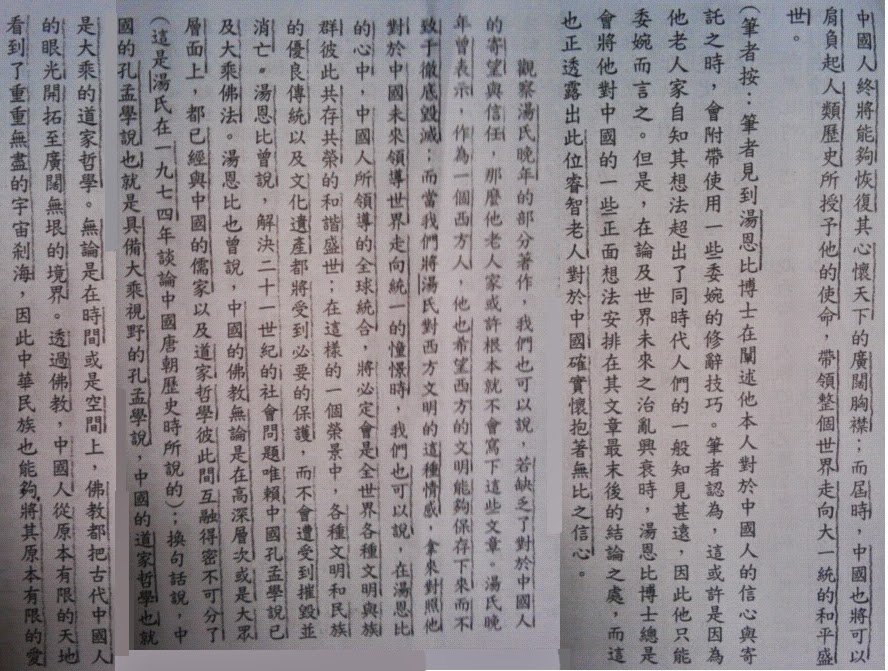 中國人終將能夠恢復其心懷天下的廣闊胸襟；而屆時，中國也將可以
肩負起人類歷史所授予他的使命，帶領整個世界走向大一統的和平盛
世。
（筆者按：筆者見到湯恩比博士在闡述他本人對於中國人的信心與寄
託之時，會附帶使用一些委婉的修辭技巧。筆者認為，這或許是因為
他老人家自知其想法超出了同時代人們的一般知見甚遠，因此他只能
委婉而言之。但是，在論及世界未來之治亂興衰時，湯恩比博士總是
會將他對中國的一些正面想法安排在其文章最末後的結論之處，而這
也正透露出此位睿智老人對於中國確實懷抱著無比之信心。
觀察湯氏晚年的部分著作，我們也可以說，若缺乏了對於中國人
的寄望與信任，那麼他老人家或許根本就不會寫下這些文章。湯氏晚
年曾表示，作為一個西方人，他也希望西方的文明能夠保存下來而不
致于徹底毀滅；而當我們將湯氏對西方文明的這種情感，拿來對照他
對於中國未來領導世界走向統一的憧憬時，我們也可以說，在湯恩比
的心中，中國人所領導的全球統合，將必定會是全世界各種文明與族
群彼此共存共榮的和諧盛世；在這樣的一個榮景中，各種文明和民族
的優良傳統以及文化遺產都將受到必要的保護，而不會遭受到摧毀並
消亡。湯恩比曾說，解決二十一世紀的社會問題唯賴中國孔孟學說已
及大乘佛法。湯恩比也曾說，中國的佛教無論是在高深層次或是大眾
層面上，都已經與中國的儒家以及道家哲學彼此間互融得密不可分了
（這是湯氏在一九七四年談論中國唐朝歷史時所說的）；換句話說，中
國的孔孟學說也就是具備大乘視野的孔孟學說，中國的道家哲學也就
是大乘的道家哲學。無論是在時間或是空間上，佛教都把古代中國人
的眼光開拓至廣闊無垠的境界。透過佛教，中國人從原本有限的天地
看到了重重無盡的宇宙剎海，因此中華民族也能夠將其原本有限的愛